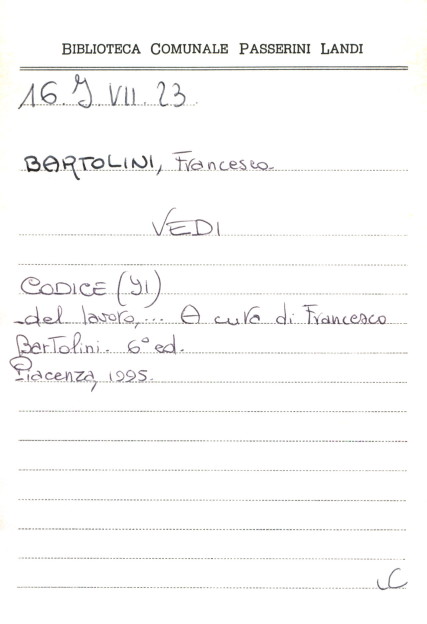 BIBLIOTECA COMUNALE PASSERINI LANDI
16. I VII. 23
BARTOLINI, Francesco
VEDI
CODICE (Il)
del lavoro,... A cura di Francesco
Bartolini. 6° ed.
Piacenza, 1995.